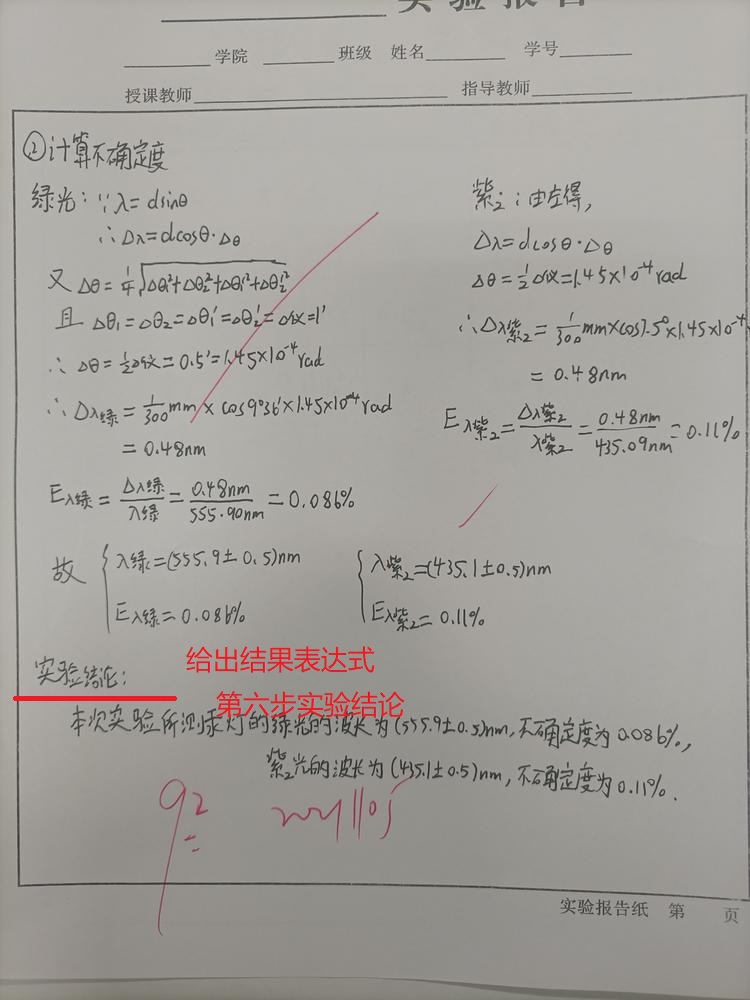 实验报告
学院 班级 姓名 学号
授课教师 指导教师
②计算不确定度
绿光：∵λ=dsinθ
∴Δλ=dcosθ·Δθ
又 Δθ=1/4√(Δθ₁²+Δθ₂²+Δθ₁'²+Δθ₂'²)
且 Δθ₁=Δθ₂=Δθ₁'=Δθ₂'=Δ仪=1'
∴Δθ=1/2Δ仪=0.5'=1.45×10⁻⁴rad
∴Δλ绿=1/300mm×cos9°36'×1.45×10⁻⁴rad
=0.48nm
Eλ绿=Δλ绿/λ绿=0.48nm/555.90nm=0.086%
紫₂：由左得，
Δλ=dcosθ·Δθ
Δθ=1/2Δ仪=1.45×10⁻⁴rad
∴Δλ紫₂=1/300mm×cos7.5°×1.45×10⁻⁴
=0.48nm
Eλ紫₂=Δλ紫₂/λ紫₂=0.48nm/435.09nm=0.11%
故 {λ绿=(555.9±0.5)nm {λ紫₂=(435.1±0.5)nm
Eλ绿=0.086% Eλ紫₂=0.11%
给出结果表达式
实验结论：
第六步实验结论
本次实验所测汞灯的绿光的波长为(555.9±0.5)nm，不确定度为0.086%，
紫₂光的波长为(435.1±0.5)nm，不确定度为0.11%.
92
实验报告纸 第 页